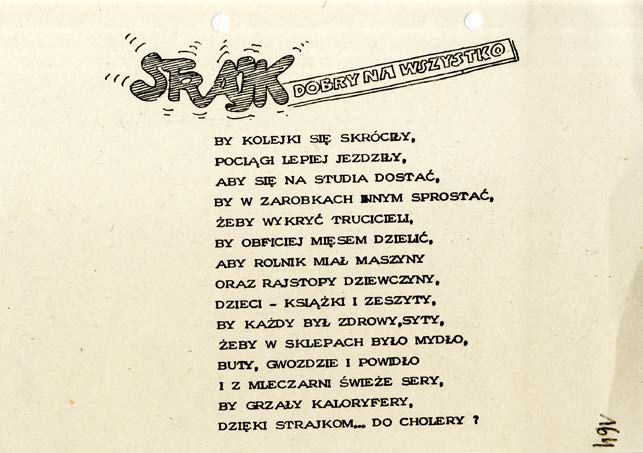 STRAJK DOBRY NA WSZYSTKO
BY KOLEJKI SIĘ SKRÓCIŁY,
POCIĄGI LEPIEJ JEZDZIŁY,
ABY SIĘ NA STUDIA DOSTAĆ,
BY W ZAROBKACH INNYM SPROSTAĆ,
ŻEBY WYKRYĆ TRUCICIELI,
BY OBFICIEJ MIĘSEM DZIELIĆ,
ABY ROLNIK MIAŁ MASZYNY
ORAZ RAJSTOPY DZIEWCZYNY,
DZIECI - KSIĄŻKI I ZESZYTY,
BY KAŻDY BYŁ ZDROWY,SYTY,
ŻEBY W SKLEPACH BYŁO MYDŁO,
BUTY, GWOZDZIE I POWIDŁO
I Z MLECZARNI ŚWIEŻE SERY,
BY GRZAŁY KALORYFERY,
DZIĘKI STRAJKOM... DO CHOLERY ?
164